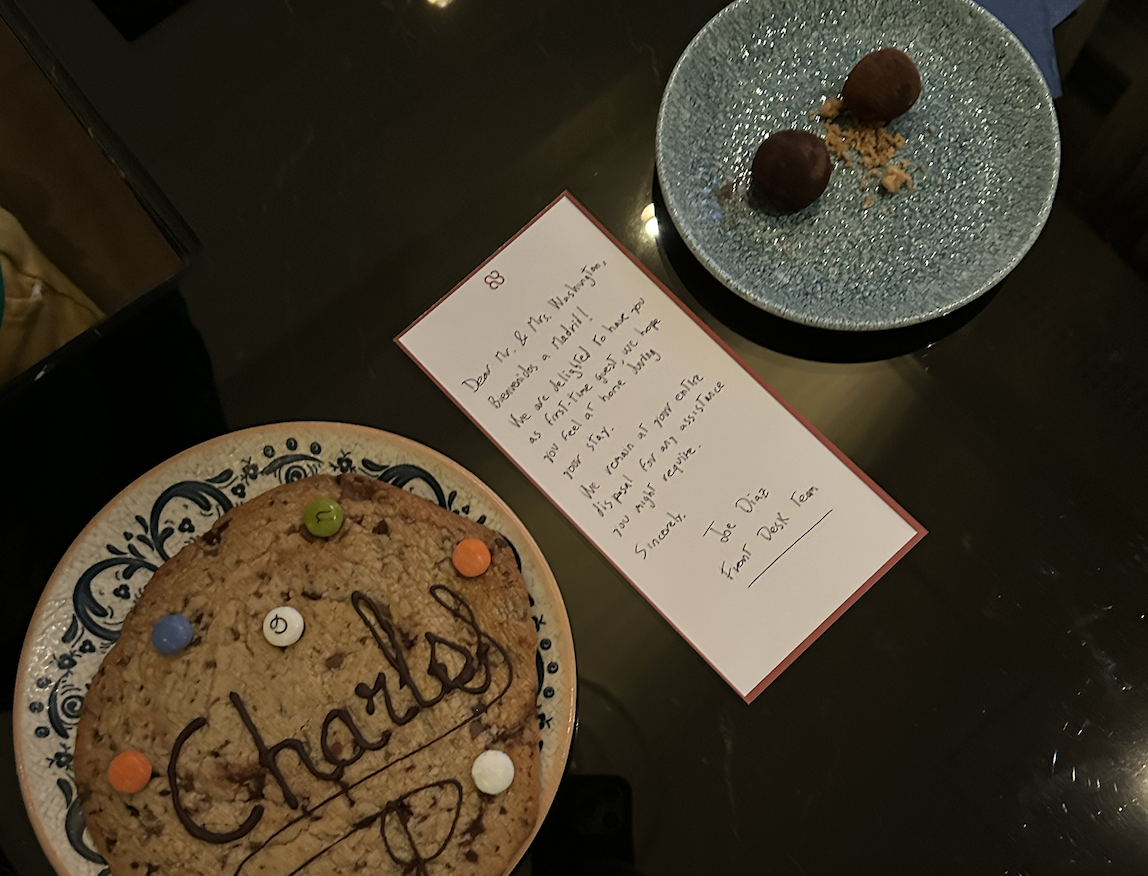 Dear Mr. & Mrs. Washington,
Bienvenidos a Madrid!
We are delighted to have you
as first-time guest, we hope
you feel at home during
your stay.
We remain at your entire
disposal for any assistance
you might require.
Sincerely,
Joe Diaz
Front Desk Team
Charles